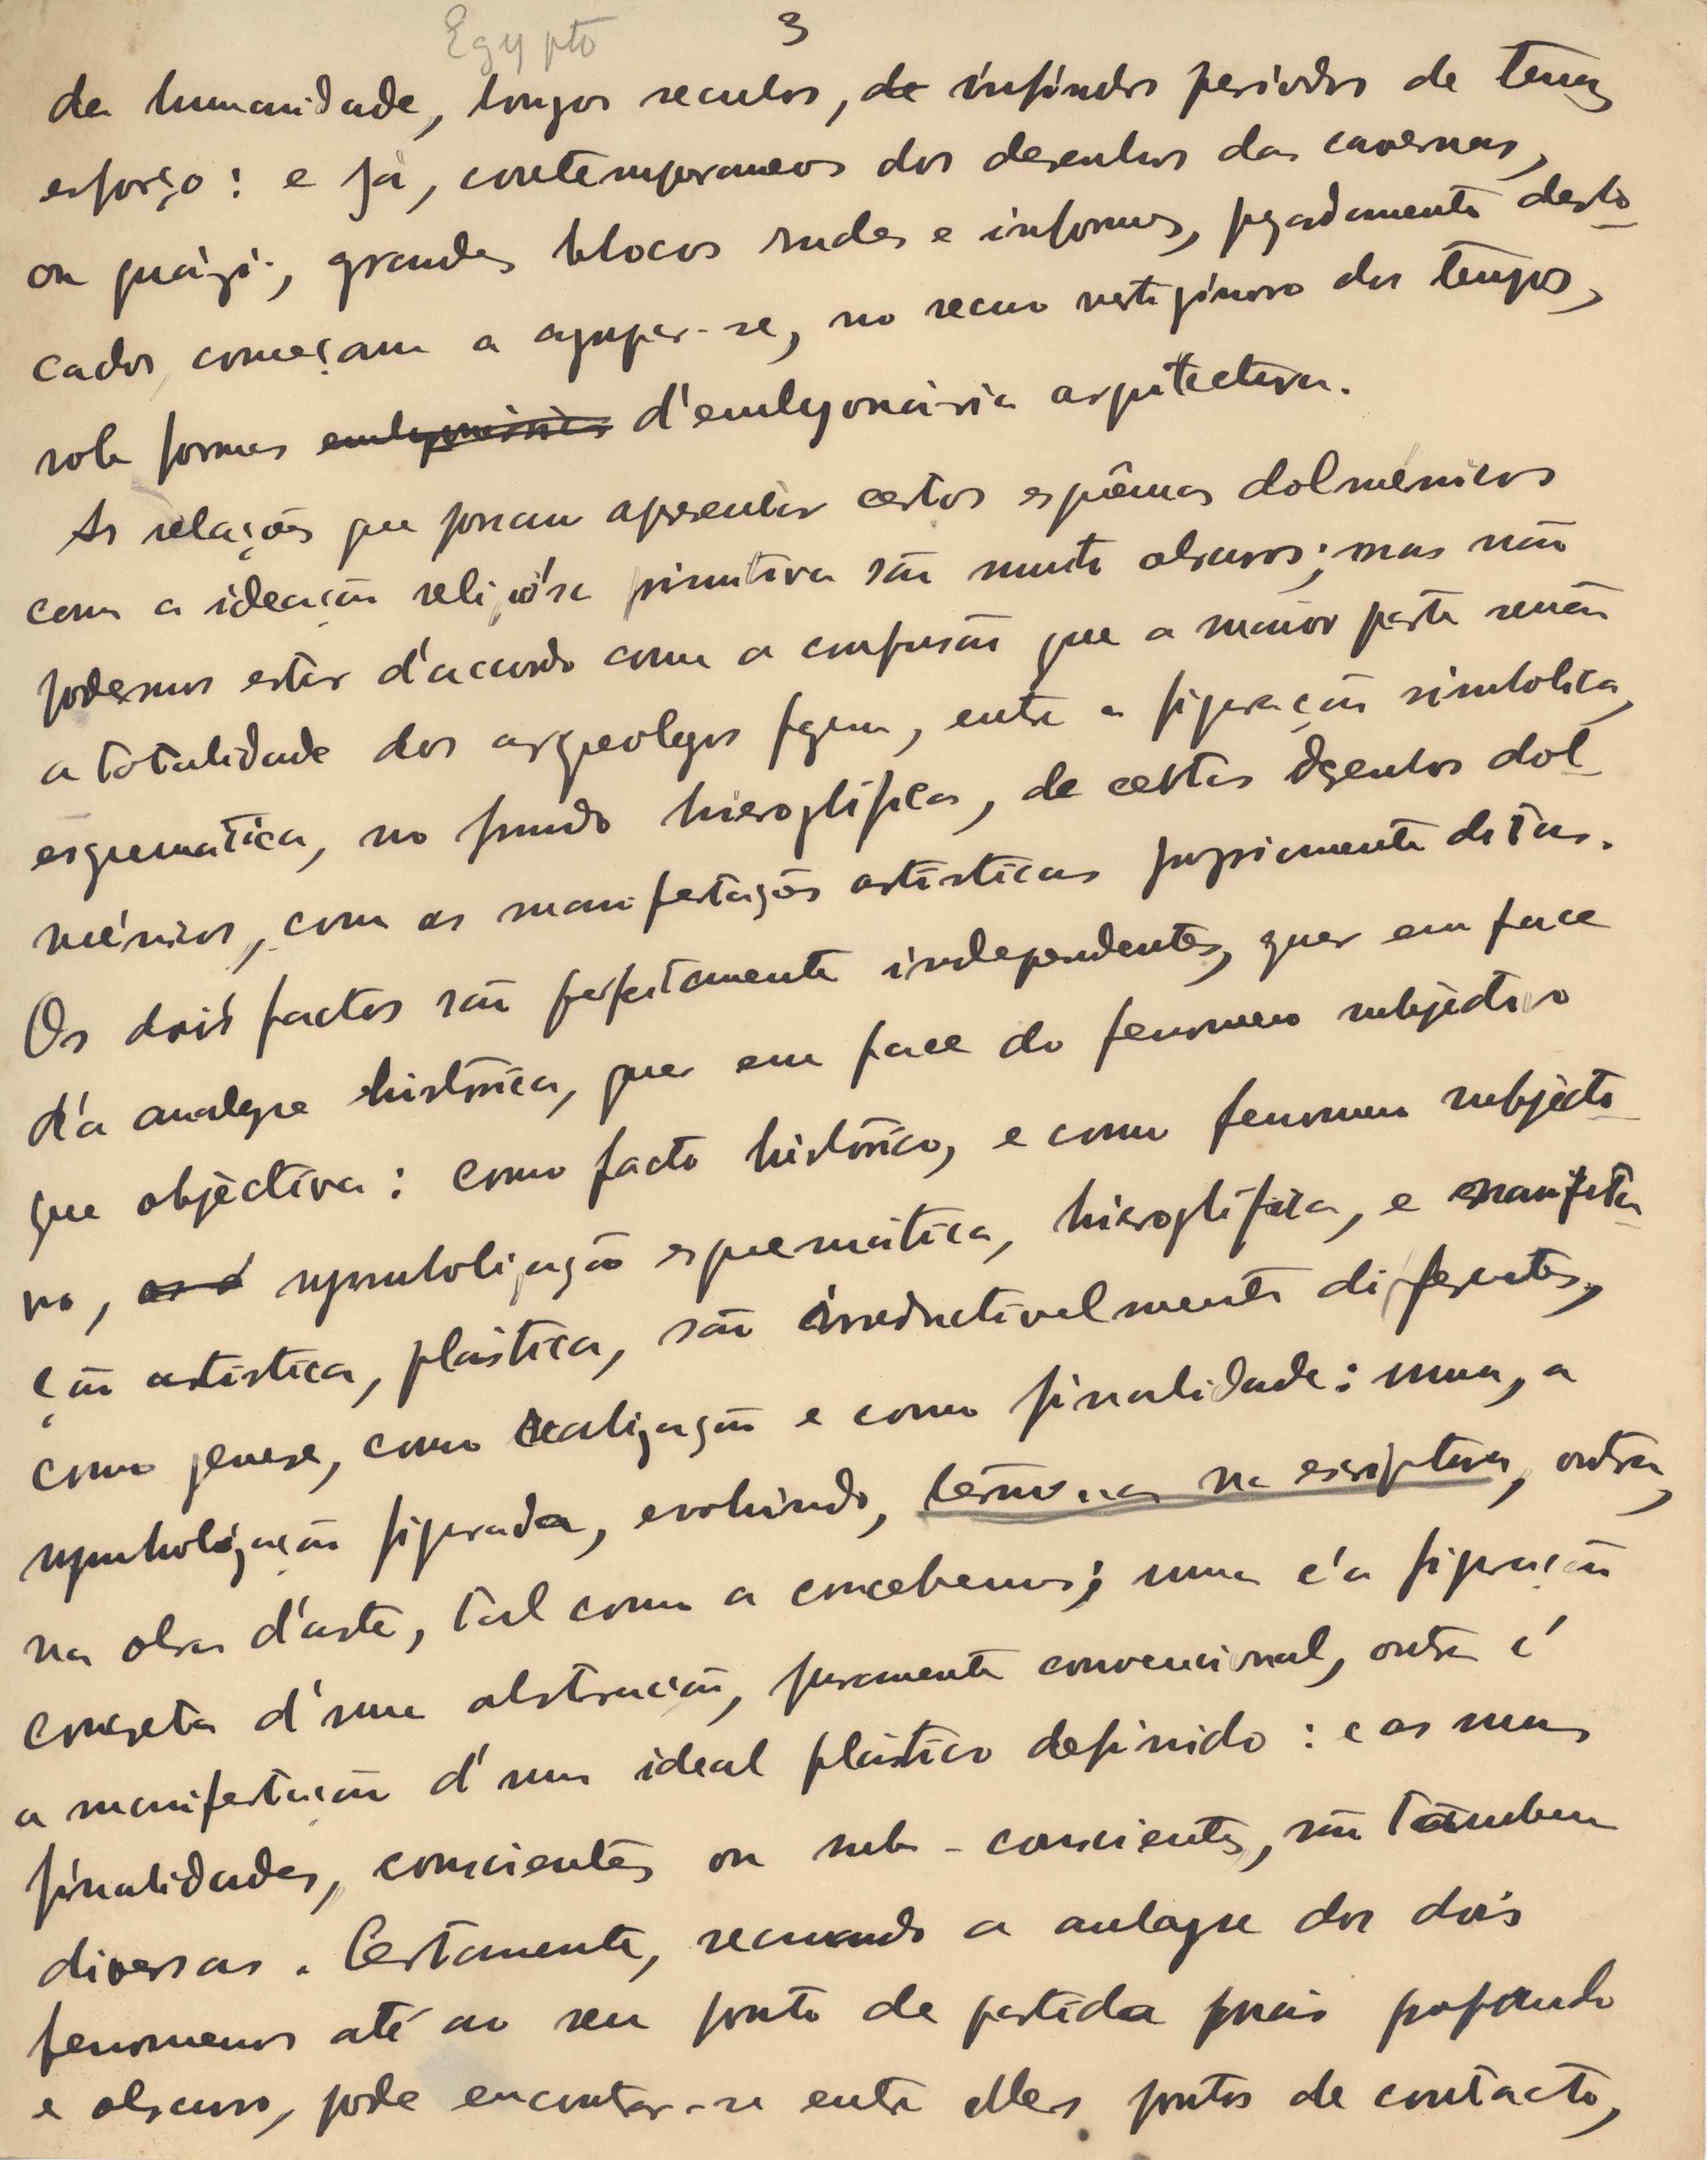 Egypto
3
da humanidade, longos seculos, de infindos periodos de tenaz
esforço: e já, contemporaneos dos desenhos das cavernas,
ou quási, grandes blocos rudes e informes, pezadamente deslo-
cados, começam a agrupar-se, no recuo vertiginoso dos tempos,
sob formas embryonárias d'embryonária arquitectura.
As relações que possam apresentar certos esquêmas dolménicos
com a ideação religiósa primitiva são muito obscuros; mas não
podemos estar d'accordo com a confusão que a maior parte senão
a totalidade dos arqueologos fazem, entre a figuração simbolica,
esquematica, no fundo hieroglífica, de certos desenhos dol-
ménicos, com as manifestações artisticas propriamente ditas.
Os dois factos são perfeitamente independentes, quer em face
d'a analyse histórica, quer em face do fenomeno subjectivo
que objéctiva: como facto histórico, e como fenomeno subjécti-
vo, as symbolização esquemática, hieroglífica, e manifesta-
ção artistica, plástica, são irreductivelmente differentes,
como genese, como realização e como finalidade: uma, a
symbolização figurada, evoluindo, na escriptura, outra,
na obra d'arte, tal como a concebemos; uma é a figuração
concreta d'uma abstracção, puramente convencional, outra é
a manifestação d'um ideal plástico definido: e as suas
finalidades, conscientes ou sub-conscientes, são tambem
diversas. Certamente, recuando a analyse dos dois
fenomenos até ao seu ponto de partida mais profundo
e obscuro, pode encontrar-se entre elles pontos de contacto,